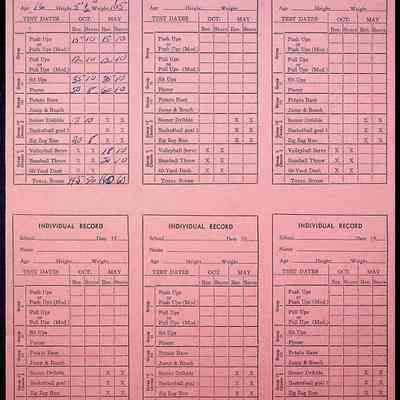 Age 16 Height 5' Weight 105 Age Height Weight Age Height Weight
TEST DATES OCT. MAY TEST DATES OCT. MAY TEST DATES OCT. MAY
Rec. Score Rec. Score Rec. Score Rec. Score Rec. Score Rec. Score
Push Ups 15 10 15 10 Push Ups Push Ups
or or or
Push Ups (Mod.) Push Ups (Mod.) Push Ups (Mod.)
Pull Ups 10 10 Pull Ups Pull Ups
or or or
Pull Ups (Mod.) Pull Ups (Mod.) Pull Ups (Mod.)
Sit Ups 35 10 10 Sit Ups Sit Ups
Planor 50 8 60 10 Planor Planor
Potato Race Potato Race Potato Race
Jump & Reach Jump & Reach Jump & Reach
Soccer Dribble 10 X X Soccer Dribble X X Soccer Dribble X X
Basketball goal X X Basketball goal X X Basketball goal X X
Zig Zag Run 8 X X Zig Zag Run X X Zig Zag Run X X
Volleyball Serve X X 18 10 Volleyball Serve X X Volleyball Serve X X
Baseball Throw X X 10 Baseball Throw X X Baseball Throw X X
60-Yard Dash X X 60-Yard Dash X X 60-Yard Dash X X
TOTAL SCORE TOTAL SCORE TOTAL SCORE
INDIVIDUAL RECORD INDIVIDUAL RECORD INDIVIDUAL RECORD
School Date 19 School Date 19 School Date 19
Name Name Name
Age Height Weight Age Height Weight Age Height Weight
TEST DATES OCT. MAY TEST DATES OCT. MAY TEST DATES OCT. MAY
Rec. Score Rec. Score Rec. Score Rec. Score Rec. Score Rec. Score
Push Ups Push Ups Push Ups
or or or
Push Ups (Mod.) Push Ups (Mod.) Push Ups (Mod.)
Pull Ups Pull Ups Pull Ups
or or or
Pull Ups (Mod.) Pull Ups (Mod.) Pull Ups (Mod.)
Sit Ups Sit Ups Sit Ups
Planor Planor Planor
Potato Race Potato Race Potato Race
Jump & Reach Jump & Reach Jump & Reach
Soccer Dribble X X Soccer Dribble X X Soccer Dribble X X
Basketball goal X X Basketball goal X X Basketball goal X X
Zig Zag Run X X Zig Zag Run X X Zig Zag Run X X